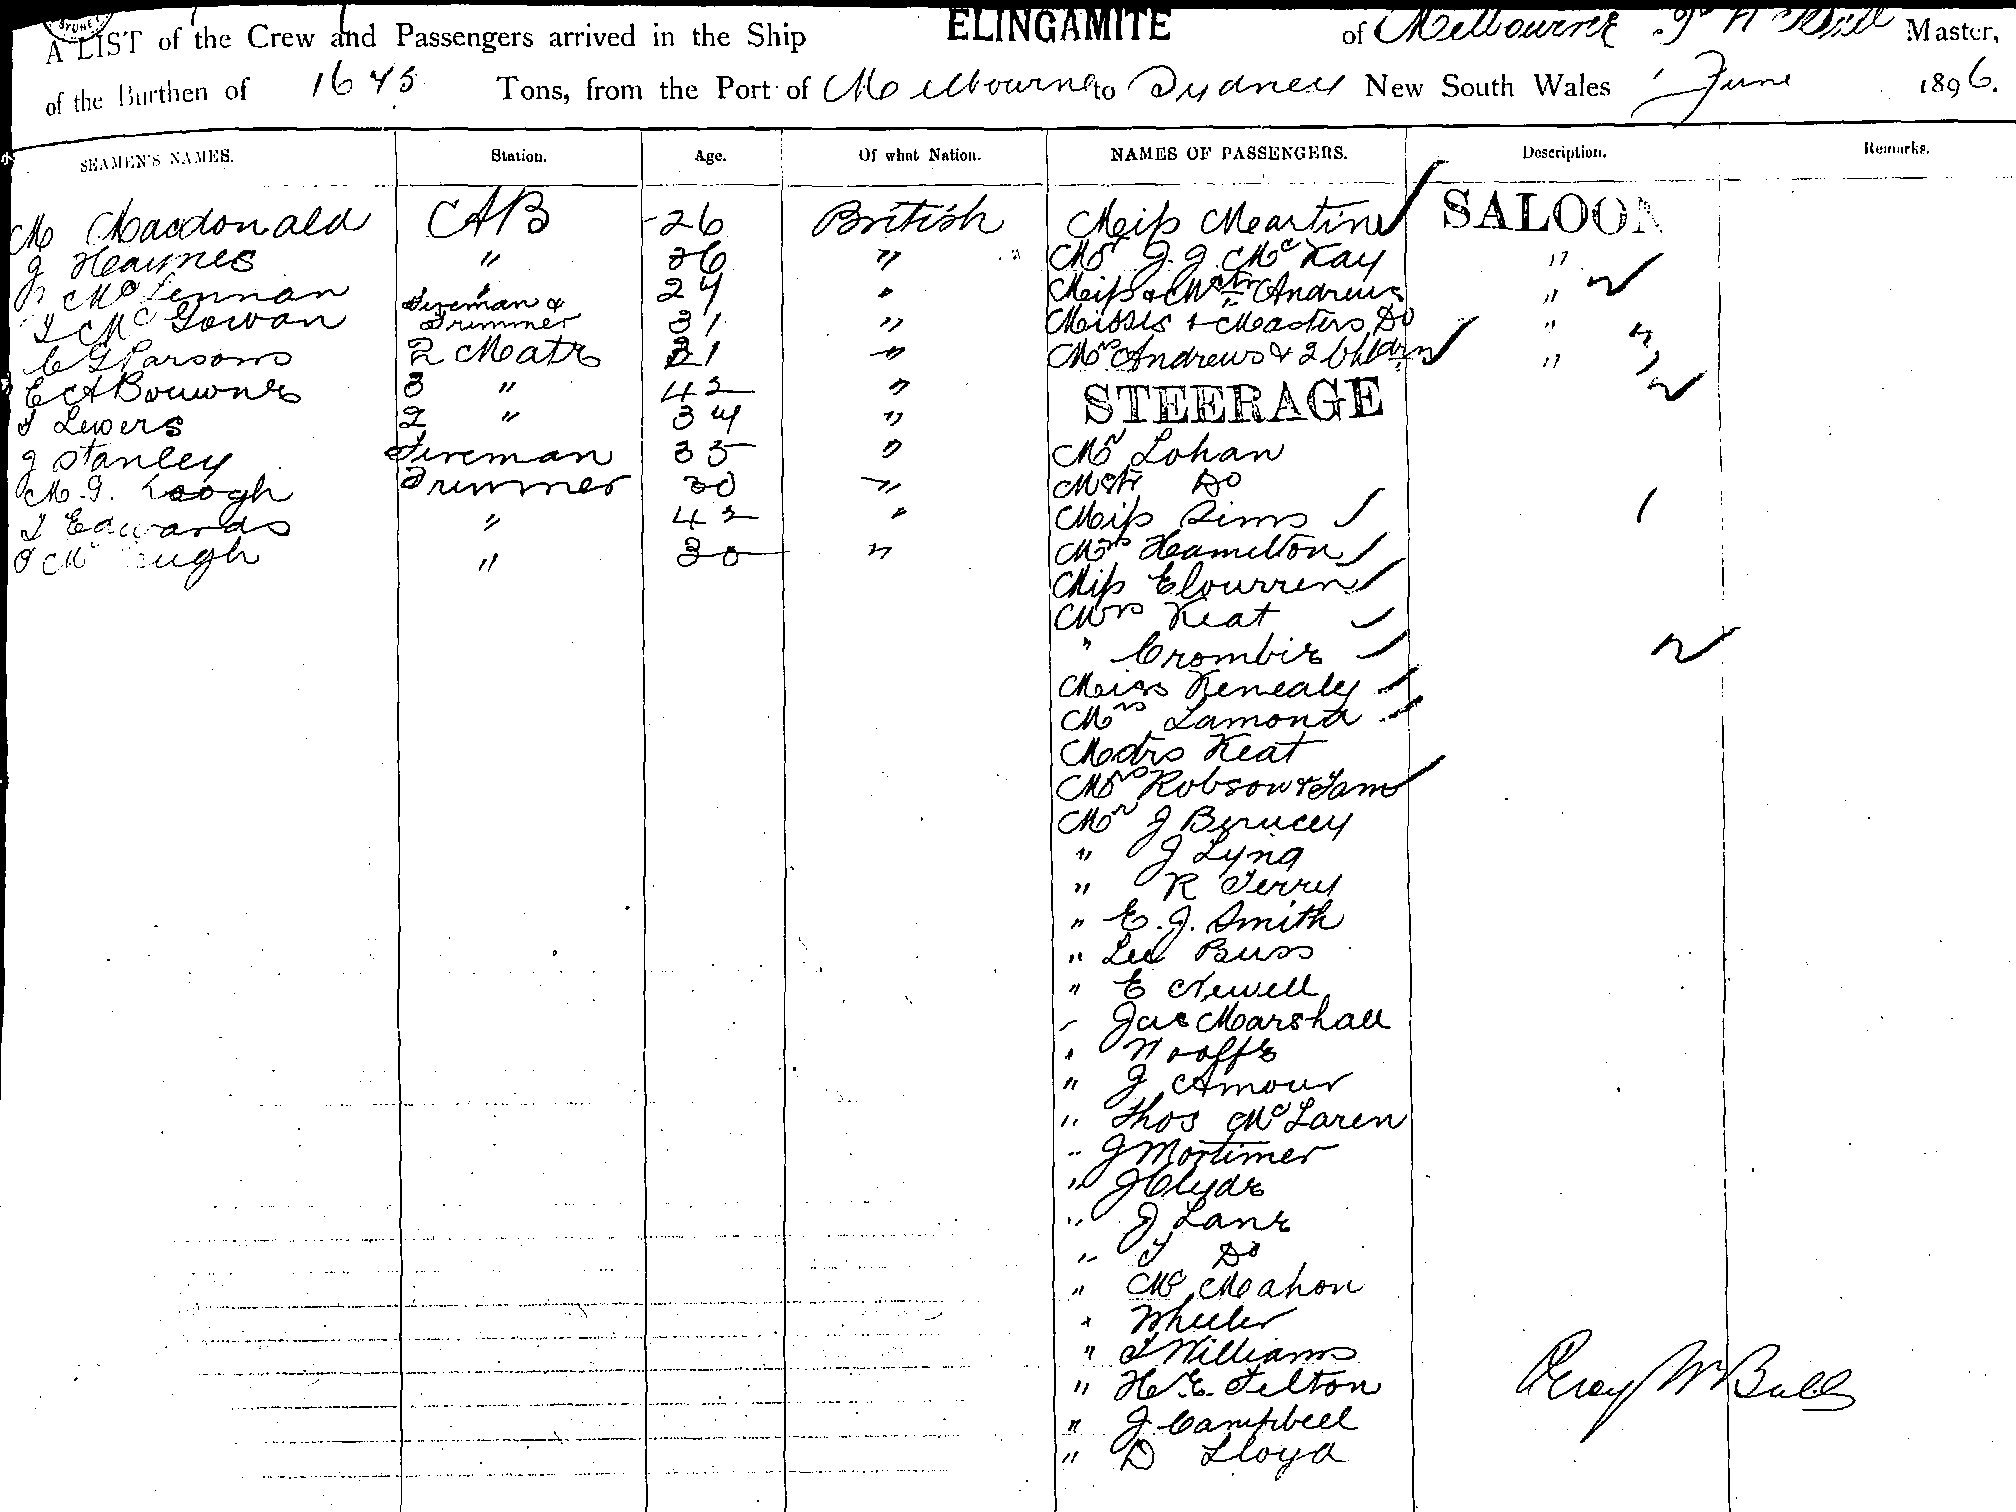 A LIST of the Crew and Passengers arrived in the Ship ELINGAMITE of Melbourne Master,
of the Burthen of 1645 Tons, from the Port of Melbourne to Sydney New South Wales 1 June 1896.
SEAMEN'S NAMES. Station. Age. Of what Nation. NAMES OF PASSENGERS. Description. Remarks.
M Macdonald AB 26 British Miss Martin SALOON
J Haynes " 36 " Mr J. J. McKay "
McLennan " 24 " Miss & Mstr Andrews "
T McGowan Fireman & Trimmer 31 " Misses & Masters Do "
C G Parsons 2 Mate 21 " Mrs Andrews & 2 Chldrn "
E A Bouwnes 3 " 42 " STEERAGE
T Lewers 2 " 34 "
J Stanley Fireman 35 " Mr Lohan
M. J. Trimmer 30 " Mstr Do
T Edwards " 42 " Miss Sims
" 30 " Mrs Hamilton
Miss Elourren
Mrs Keat
" Crombie
Miss Kenealy
Mrs Lamond
Mstrs Keat
Mrs Robson & Fam
Mr J Berucey
" J Lyng
" R Terry
" E. J. Smith
" Lee Buss
" E Newell
" Jas Marshall
" Woolfe
" J Amour
" Thos McLaren
" J Mortimer
" J Clyde
" J Lane
" T Do
" McMahon
" Wheeler
" T Williams
" H. E. Felton
" J. Campbell
" D Lloyd